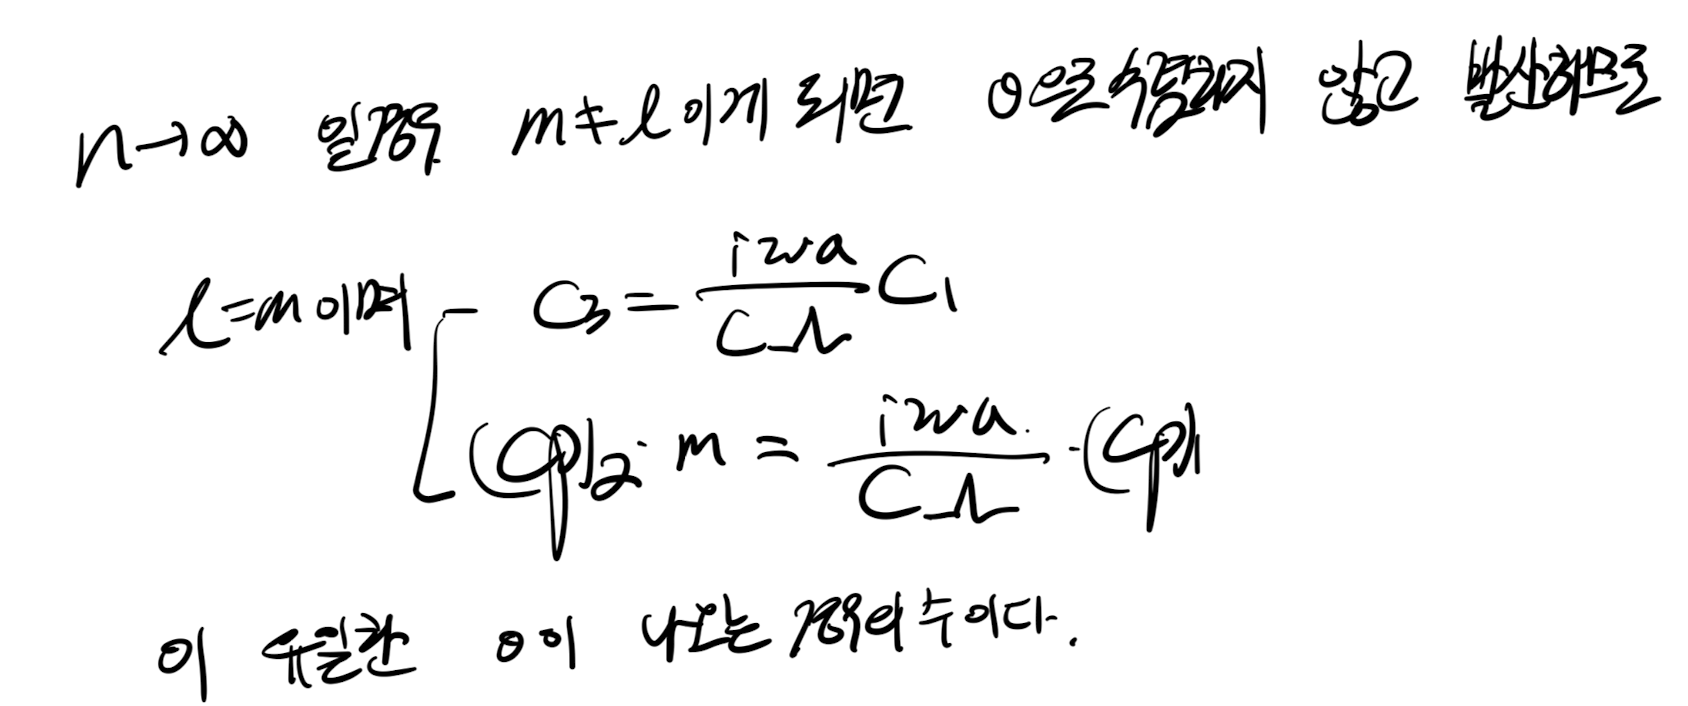 n→∞ 일경우 m≠l이게 되면 0으로 수렴되지 않고 발산해므로
l=m이며 C₃ = iwa/CΩ C₁
(Cp)₂·m = iwa/CΩ ·(Cp)₁
이 유일한 0이 나오는 경우의 수이다.